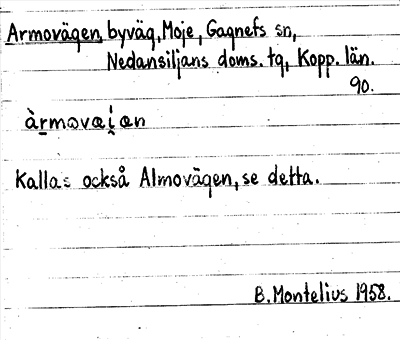 Armovägen, byväg, Moje, Gagnefs sn,
Nedansiljans doms. tg, Kopp. län.
90.
àrmovæi̯æn
Kallas också Almovägen, se detta.
B. Montelius 1958.